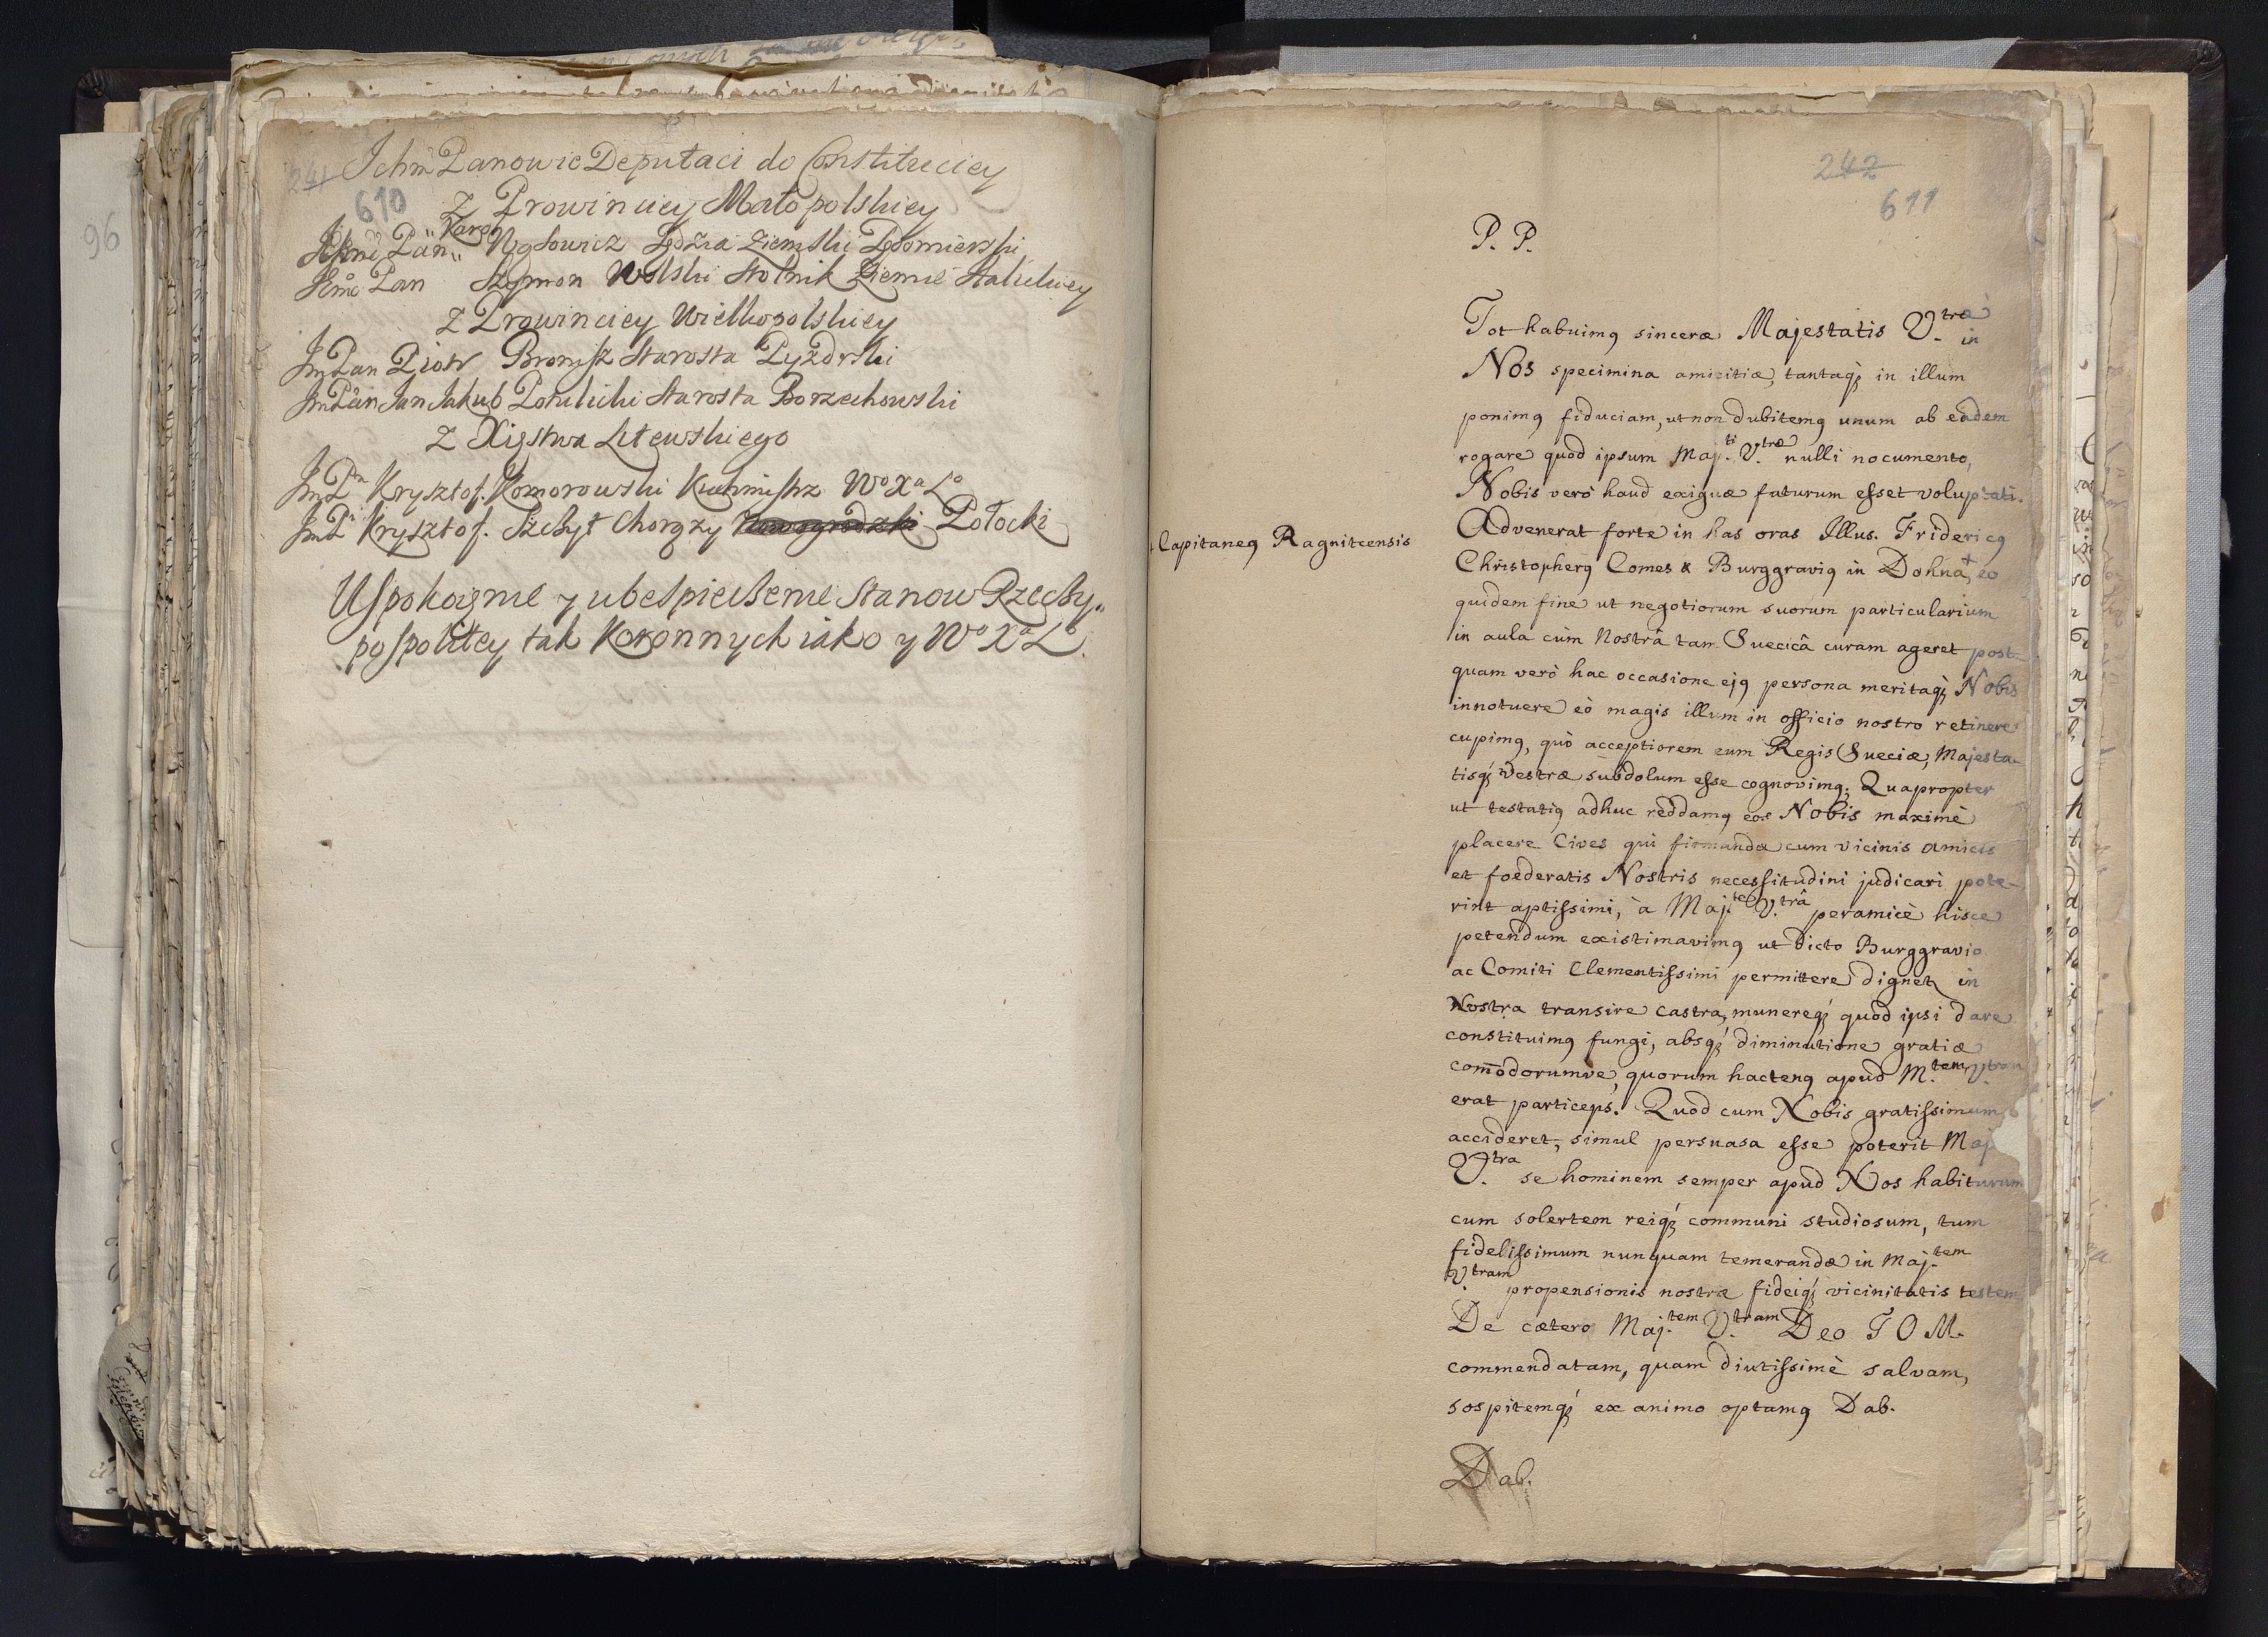 241
610
Ichm Panowie Deputaci do Constituciey
z Prowincyey Małopolskiey
Karol
Jeme Pan Sędzia Ziemski Sędomierski
Jeme Pan Szymon Wolski Stolnik Ziemie Halickiey
z Prowinciey Wielkopolskiey
Jm Pan Piotr Bronisz Starosta Pyzdrski
Jm Pan Jan Jakub Potulicki Starosta Borzechowski
z Xięstwa Litewskiego
Jm Pn Krysztof Komorowski Kuchmistrz Wo Xa Lo
Jm P Krysztof Szczyt Chorązy Połocki
Uspokoienie y ubespieczenie Stanow Rzeczy„
pospolitey tak Koronnych iako y Wo Xa L.
96
242
611
P. P.
Tot habuimꝰ sinceræ Majestatis V.træ in
Nos specimina amicitiæ, tantaqꝫ in illum
ponimꝰ fiduciam, ut non dubitemꝰ unum ab eadem
rogare quod ipsum Maj.ti V.træ nulli nocumento,
Nobis verò haud exiguæ futurum esset voluptati.
Advenerat forte in has oras Illus. Fridericꝰ
Christopherꝰ Comes & Burggraviꝰ in Dohna,+ eo
+ Capitaneꝰ Ragnitcensis
quidem fine ut negotiorum suorum particularium
in aula cùm Nostrâ tam Suecicâ curam ageret post-
quam verò hac occasione ejꝰ persona meritaqꝫ Nobis
innotuere eò magis illum in officio nostro retinere
cupimꝰ, quò acceptiorem eum Regis Sueciæ, Majesta-
tisqꝫ Vestræ subdolum esse cognovimꝰ. Quapropter
ut testatiꝰ adhuc reddamꝰ eos Nobis maximè
placere Cives qui firmandæ cum vicinis amicis
et foederatis Nostris necessitudini judicari pote-
rint aptissimi, à Maj.te V.trâ peramicè hisce
petendum existimavimꝰ ut dicto Burggravio
ac Comiti Clementissimi permittere dignet in
Nostra transire castra, munereqꝫ quod ipsi dare
constituimꝰ fungi, absqꝫ diminutione gratiæ
com̄odorumve, quorum hactenꝰ apud M.tem Vtram
erat particeps. Quod cum Nobis gratissimum
accideret, simul persuasa esse poterit Maj
V.tra se hominem semper apud Nos habiturum
cum solertem reiqꝫ communi studiosum, tum
fidelissimum nunquam temerandæ in Maj.tem
V.tram propensionis nostræ fideiqꝫ vicinitatis testem
De cætero Maj.tem V.tram Deo T O M.
commendatam, quam diutissimè salvam,
sospitemqꝫ ex animo optamꝰ Dab.
Dab.